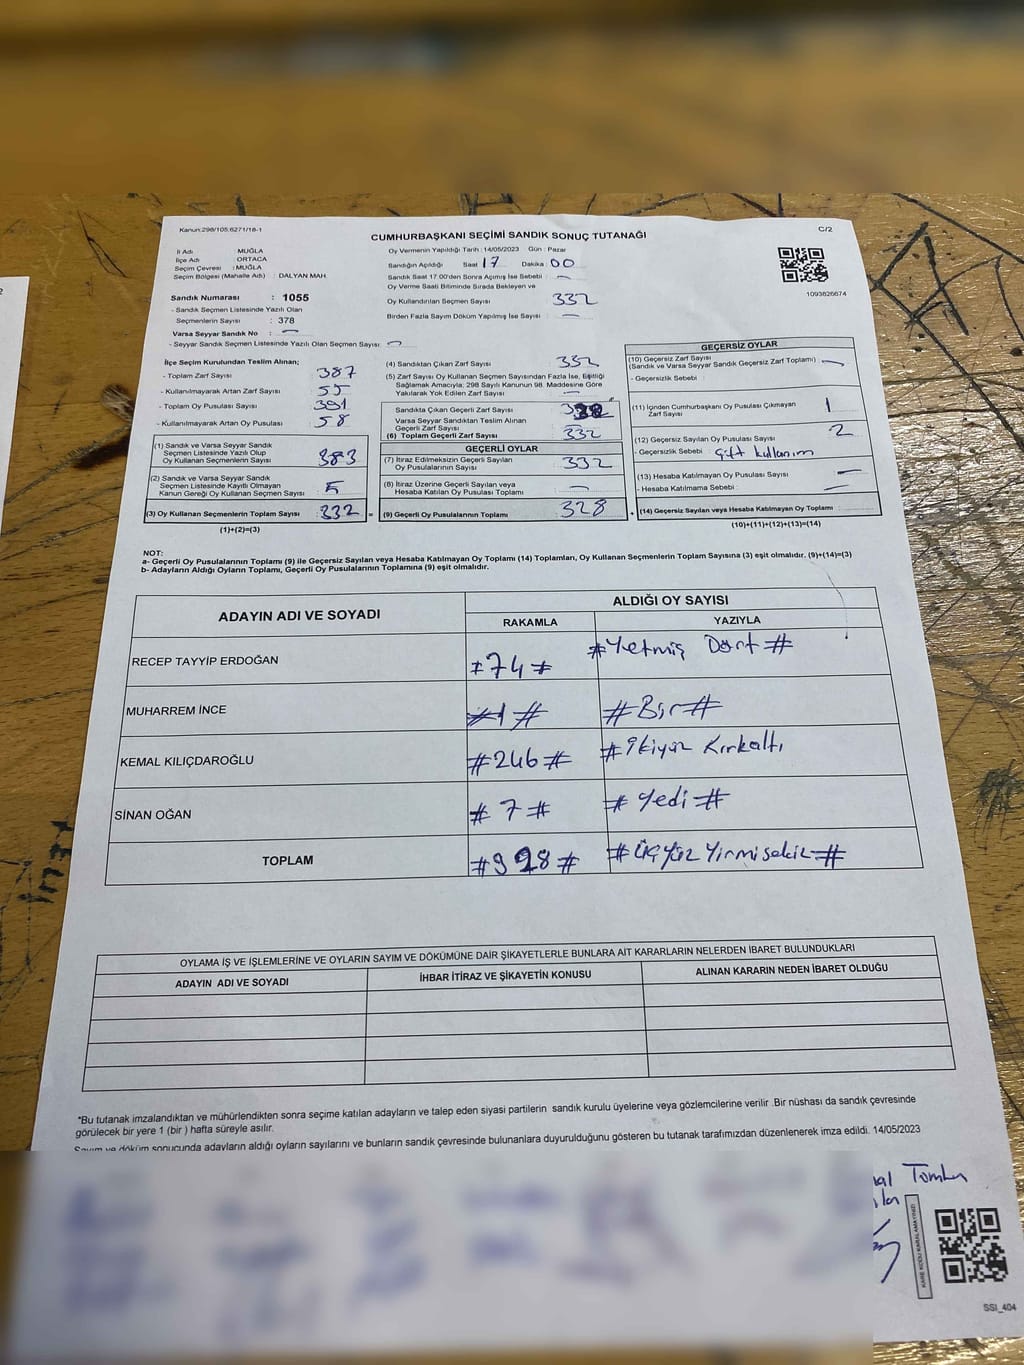 Kanun:298/105.6271/18-1
C/2
CUMHURBAŞKANI SEÇİMİ SANDIK SONUÇ TUTANAĞI
İl Adı : MUĞLA
İlçe Adı : ORTACA
Seçim Çevresi : MUĞLA
Seçim Bölgesi (Mahalle Adı) : DALYAN MAH.
Sandık Numarası : 1055
- Sandık Seçmen Listesinde Yazılı Olan
Seçmenlerin Sayısı : 378
Varsa Seyyar Sandık No : —
- Seyyar Sandık Seçmen Listesinde Yazılı Olan Seçmen Sayısı: —
Oy Vermenin Yapıldığı Tarih : 14/05/2023 Gün : Pazar
Sandığın Açıldığı Saat 17 Dakika 00
Sandık Saat 17:00'den Sonra Açımış İse Sebebi : —
Oy Verme Saati Bitiminde Sırada Bekleyen ve
Oy Kullandırılan Seçmen Sayısı 332
Birden Fazla Sayım Döküm Yapılmış İse Sayısı : —
1093826674
İlçe Seçim Kurulundan Teslim Alınan;
- Toplam Zarf Sayısı : 387
- Kullanılmayarak Artan Zarf Sayısı : 55
- Toplam Oy Pusulası Sayısı : 391
- Kullanılmayarak Artan Oy Pusulası : 58
(1) Sandık ve Varsa Seyyar Sandık
Seçmen Listesinde Yazılı Olup
Oy Kullanan Seçmenlerin Sayısı : 383
(2) Sandık ve Varsa Seyyar Sandık
Seçmen Listesinde Kayıtlı Olmayan
Kanun Gereği Oy Kullanan Seçmen Sayısı : 5
(3) Oy Kullanan Seçmenlerin Toplam Sayısı : 332 =
(1)+(2)=(3)
(4) Sandıktan Çıkan Zarf Sayısı : 332
(5) Zarf Sayısı Oy Kullanan Seçmen Sayısından Fazla İse, Eşitliği
Sağlamak Amacıyla; 298 Sayılı Kanunun 98. Maddesine Göre
Yakılarak Yok Edilen Zarf Sayısı : —
Sandıkta Çıkan Geçerli Zarf Sayısı :
Varsa Seyyar Sandıktan Teslim Alınan
Geçerli Zarf Sayısı : —
(6) Toplam Geçerli Zarf Sayısı : 332
GEÇERLİ OYLAR
(7) İtiraz Edilmeksizin Geçerli Sayılan
Oy Pusulalarının Sayısı : 332
(8) İtiraz Üzerine Geçerli Sayılan veya
Hesaba Katılan Oy Pusulası Toplamı : —
(9) Geçerli Oy Pusulalarının Toplamı : 328 +
GEÇERSİZ OYLAR
(10) Geçersiz Zarf Sayısı
(Sandık ve Varsa Seyyar Sandık Geçersiz Zarf Toplamı) : —
- Geçersizlik Sebebi :
(11) İçinden Cumhurbaşkanı Oy Pusulası Çıkmayan
Zarf Sayısı : 1
(12) Geçersiz Sayılan Oy Pusulası Sayısı : 2
- Geçersizlik Sebebi : Çift kullanım
(13) Hesaba Katılmayan Oy Pusulası Sayısı : —
- Hesaba Katılmama Sebebi : —
(14) Geçersiz Sayılan veya Hesaba Katılmayan Oy Toplamı :
(10)+(11)+(12)+(13)=(14)
NOT:
a- Geçerli Oy Pusulalarının Toplamı (9) ile Geçersiz Sayılan veya Hesaba Katılmayan Oy Toplamı (14) Toplamları, Oy Kullanan Seçmenlerin Toplam Sayısına (3) eşit olmalıdır. (9)+(14)=(3)
b- Adayların Aldığı Oyların Toplamı, Geçerli Oy Pusulalarının Toplamına (9) eşit olmalıdır.
ADAYIN ADI VE SOYADI
ALDIĞI OY SAYISI
RAKAMLA YAZIYLA
RECEP TAYYİP ERDOĞAN #74# #Yetmiş Dört#
MUHARREM İNCE #1# #Bir#
KEMAL KILIÇDAROĞLU #246# #ikiyüz Kırkaltı
SİNAN OĞAN #7# #Yedi#
TOPLAM #328# #Üçyüz Yirmisekiz#
OYLAMA İŞ VE İŞLEMLERİNE VE OYLARIN SAYIM VE DÖKÜMÜNE DAİR ŞİKAYETLERLE BUNLARA AİT KARARLARIN NELERDEN İBARET BULUNDUKLARI
ADAYIN ADI VE SOYADI İHBAR İTİRAZ VE ŞİKAYETİN KONUSU ALINAN KARARIN NEDEN İBARET OLDUĞU
*Bu tutanak imzalandıktan ve mühürlendikten sonra seçime katılan adayların ve talep eden siyasi partilerin sandık kurulu üyelerine veya gözlemcilerine verilir .Bir nüshası da sandık çevresinde
görülecek bir yere 1 (bir ) hafta süreyle asılır.
Sayım ve döküm sonucunda adayların aldığı oyların sayılarını ve bunların sandık çevresinde bulunanlara duyurulduğunu gösteren bu tutanak tarafımızdan düzenlenerek imza edildi. 14/05/2023
KARE KODU KARALAMAYINIZ!
SSI_404